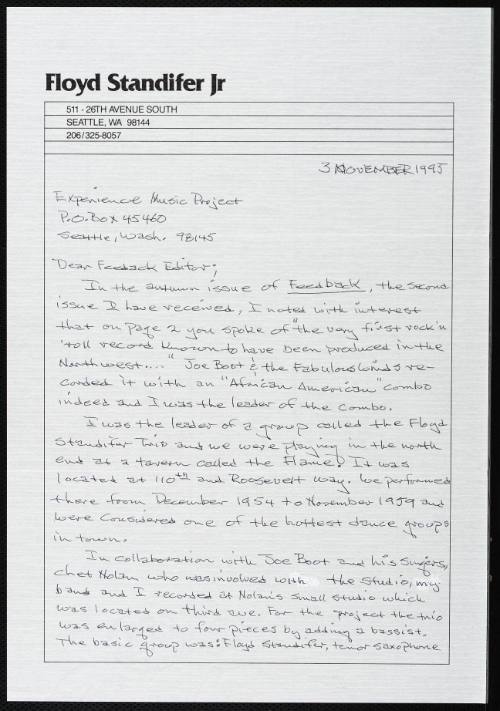 Floyd Standifer Jr
511 - 26TH AVENUE SOUTH
SEATTLE, WA 98144
206/325-8057
3 NOVEMBER 1995
Experience Music Project
P.O. Box 45460
Seattle, Wash. 98145
Dear Feedack Editor;
In the autumn issue of Feedback, the second
issue I have received, I noted with interest
that on page 2 you spoke of "the very first rock'n
'roll record known to have been produced in the
Northwest...." Joe Boot & the Fabulous Winds re-
corded it with an "African American" combo
indeed and I was the leader of the combo.
I was the leader of a group called the Floyd
Standifer Trio and we were playing in the north
end at a tavern called the Flame. It was
located at 110th and Roosevelt way. We performed
there from December 1954 to November 1959 and
were considered one of the hottest dance groups
in town.
In collaboration with Joe Boot and his singers,
Chet Nolan who was involved with the studio, my
band and I recorded at Nolan's small studio which
was located on third ave. For the project the trio
was enlarged to four pieces by adding a bassist.
The basic group was: Floyd Standifer, tenor saxophone